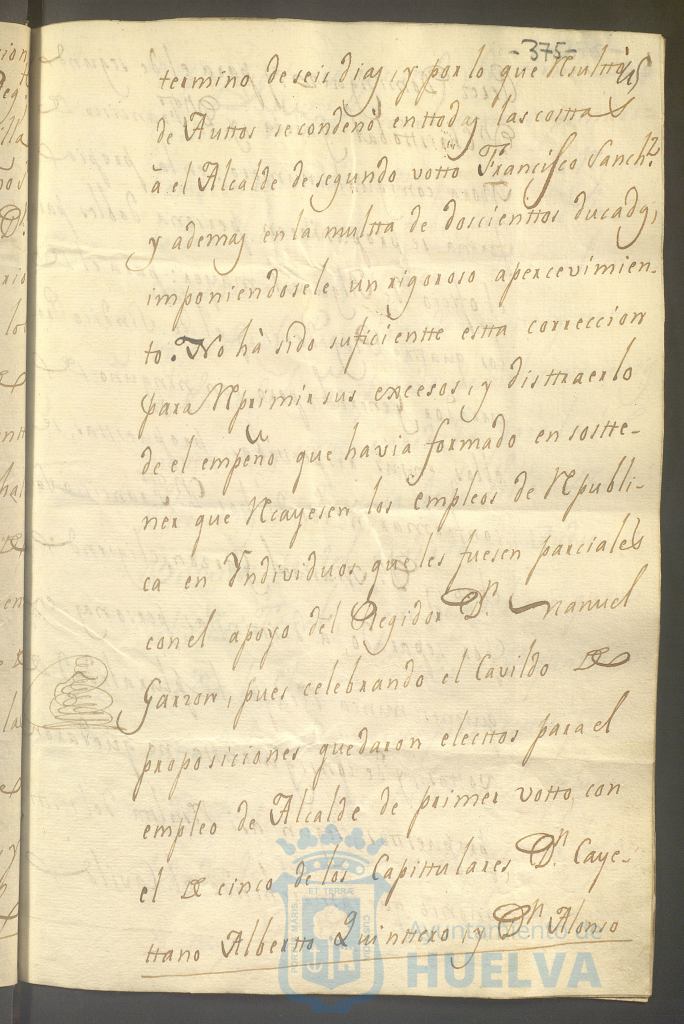 -375-
termino de seis dias, y por lo que Resultta
de Auttos se condenó en ttodas las costtas
â el Alcalde de segundo votto Francisco Sanch.z
y ademas en la multta de doscienttos ducados,
imponiendosele un rigoroso apercevimien-
to. No hà sido suficientte estta correccion
para Reprimir sus excesos, y disttraerlo
de el empeño que havia formado en sostte-
ner que Recayesen los empleos de Republi-
ca en Yndividuos, que les fuesen parciales
con el apoyo del Regidor Dn. Manuel
Garzon, pues celebrando el Cavildo de
proposiciones quedaron electtos para el
empleo de Alcalde de primer votto, con
el de cinco de los Capittulares, Dn. Caye-
ttano Albertto Quinttero, y Dn. Alonso
ET TERRÆ
PORTUS MARIS
CUSTODIA
Ayuntamiento de
HUELVA